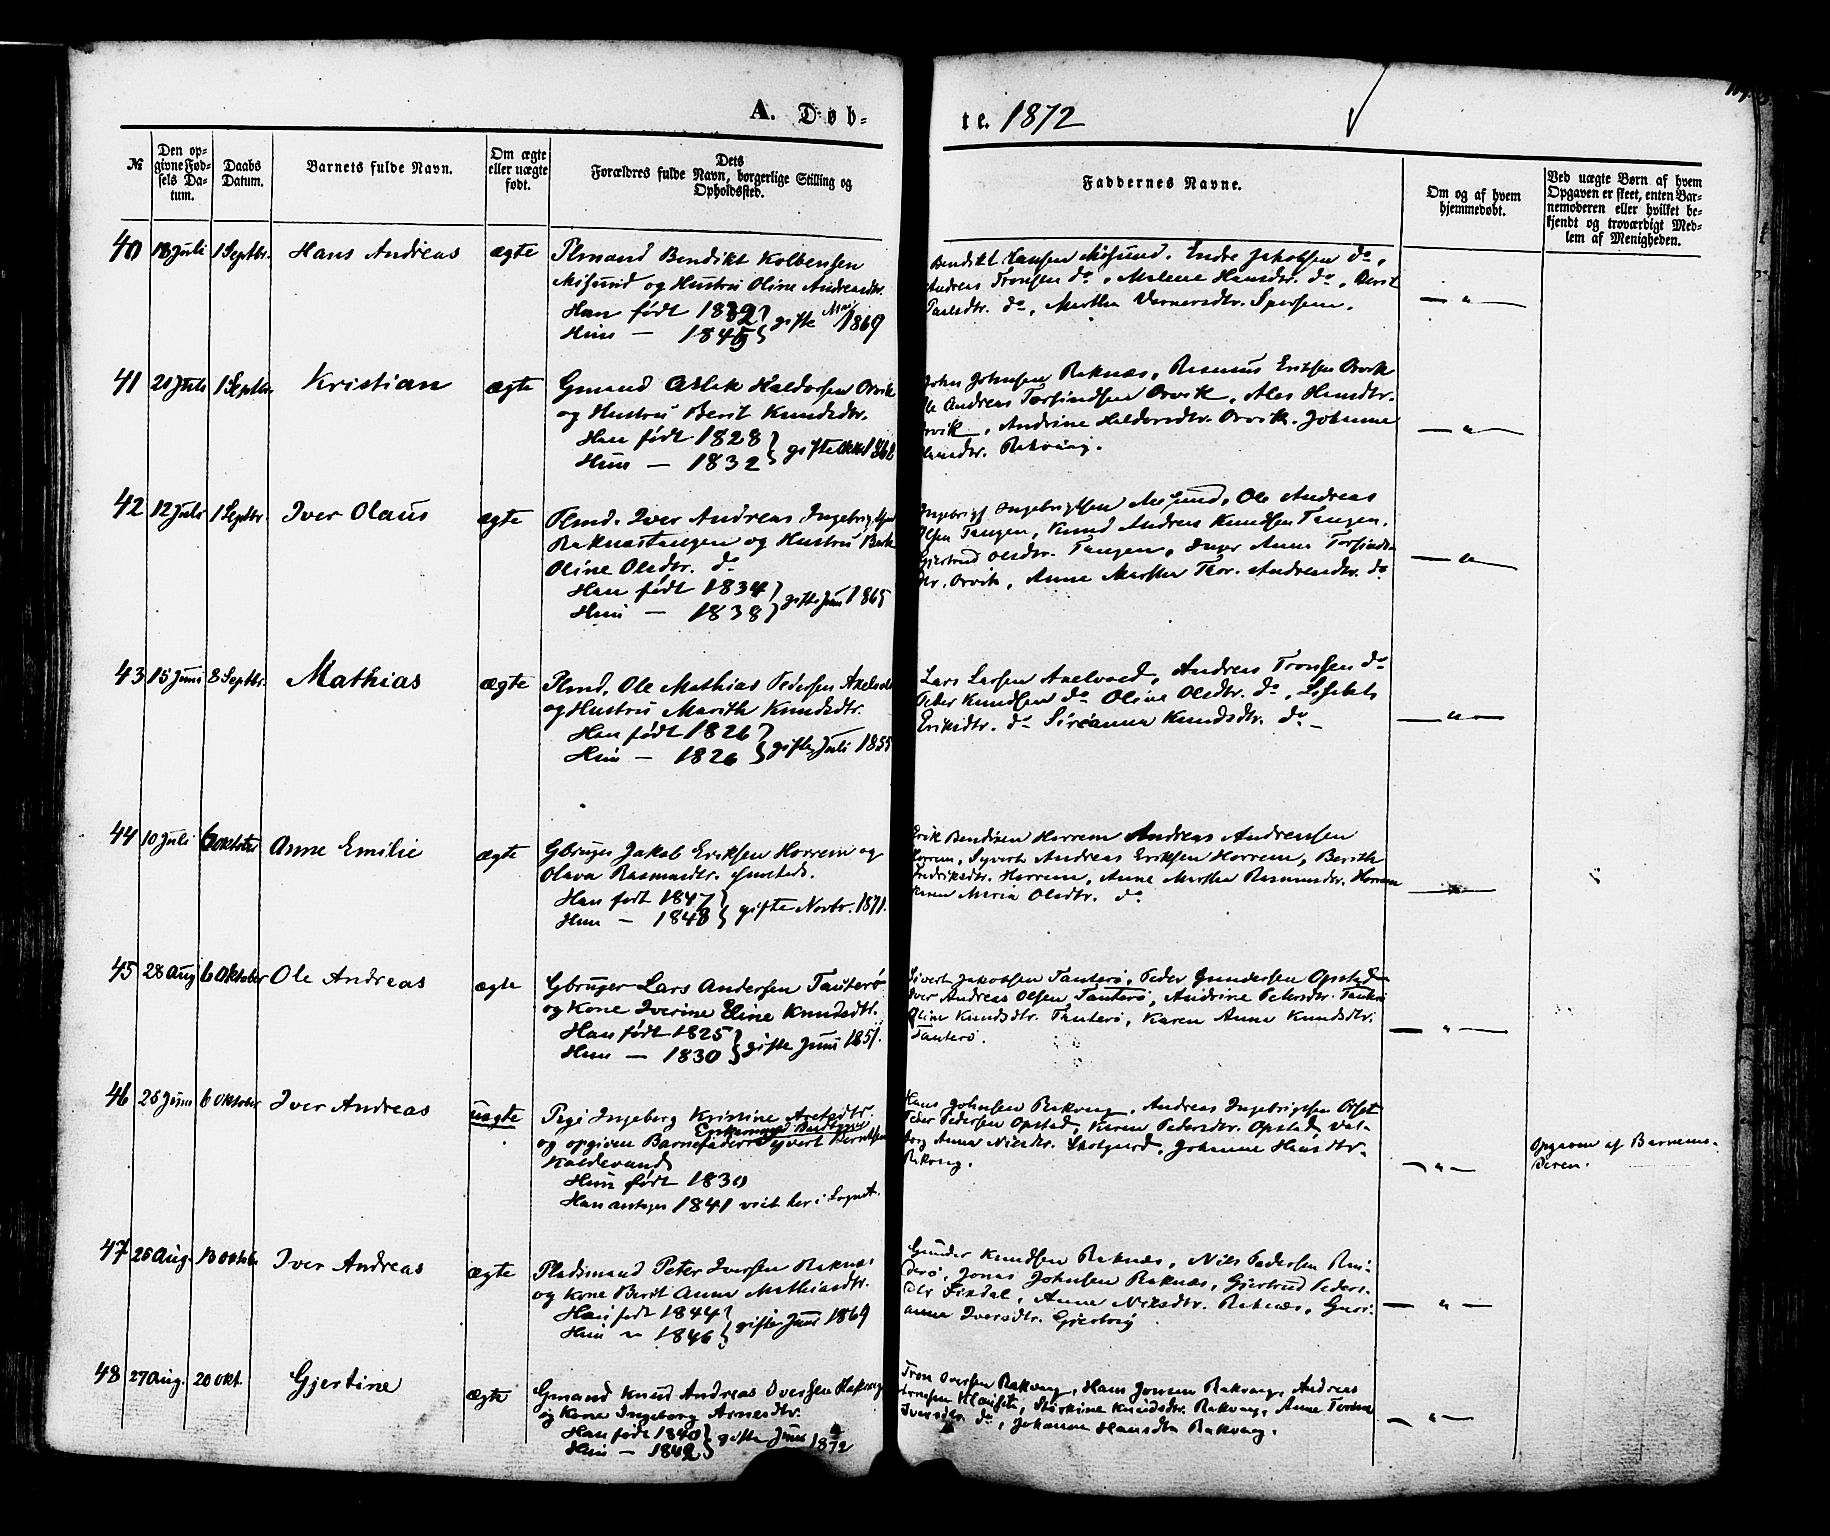 A. Døb-
te. 1872
№
Den opgivne Fødsels Datum.
Daabs Datum.
Barnets fulde Navn.
Om ægte eller uægte født.
Dets Forældres fulde Navn, borgerlige Stilling og Opholdssted.
Faddernes Navne.
Om og af hvem hjemmedøbt.
Ved uægte Børn af hvem Opgaven er skeet, enten Barnemoderen eller hvilket bekjendt og troværdigt Medlem af Menigheden.
40 18 Juli 1 Septbr. Hans Andreas ægte
Plmand Bendikt Kolbensen
Misund og Hustru Oline Andreasdtr.
Han født 1832 } gifte 1869
Hun — 1845
Bendikt Hansen Misund, Endre Jakobsen do,
Andreas Tronsen do, Malene Hansdtr. do, Berit
Paulsdtr. do, Martha
— " —
41 21 Juli 1 Septbr. Kristian ægte
Gmand Aslak Haldorsen Orvik
og Hustru Berit Knudsdtr.
Han født 1828 } gifte
Hun — 1832
John Johnsen Raknæs, Rasmus Eriksen Orvik
Ole Andreas Torfindsen Orvik,
Orvik, Andrine Haldorsdtr. Orvik. Johanne
Hansdtr. Rakvaag.
— " —
42 12 Juli 1 Septbr. Iver Olaus ægte
Plmd. Iver Andreas Ingebrigtsen
Raknæstangen og Hustru
Oline Olsdtr. do
Han født 1834 } gifte Juni 1865
Hun — 1838
Ingebrigt Ingebrigtsen Misund, Ole Andreas
Olsen Tangen, Knud Andreas Knudsen Tangen,
Gjertrud Olsdtr. Tangen, Anne Torfinds-
dtr. Orvik, Anne Martha Andreasdtr. do
— " —
43 15 Juni 8 Septbr. Mathias ægte
Plmd. Ole Mathias Pedersen
og Hustru Marith Knudsdtr.
Han født 1826
Hun — 1826 } gifte Juli 1855
Lars Larsen Axelvold, Andreas Tronsen do
Peter Knudsen do Oline Olsdtr. do, Lisabet
Eriksdtr. do Sirianna Knudsdtr. do —
— " —
44 10 Juli 6 Oktober Anne Emilie ægte
Gbruger Jakob Eriksen Horrem og
Olava Rasmusdtr. ibmsteds.
Han født 1847 } gifte Novbr. 1871.
Hun — 1848
Erik Bendixen Horrem Andreas Andreassen
Horrem, Syvert Andreas Eriksen Horrem, Berith
Fredriksdtr. Horrem, Anne Martha Rasmusdtr. Horrem
Karen Maria Olsdtr. do
— " —
45 28 Aug 6 Oktober Ole Andreas ægte
Gbruger Lars Andersen Tauterø
og Kone Iverine Eline Knudsdtr.
Han født 1825 } gifte Juni 1851.
Hun — 1830
Sivert Jakobsen Tauterø, Peder Gundersen Opstad
Iver Andreas Olsen Tauterø, Andrine Petersdtr.
Oline Knudsdtr. Tauterø, Karen Anne Knudsdtr.
Tauterø.
— " —
46 25 Juni 6 Oktober Iver Andreas uægte
Pige Ingeborg Kristine
og opgiven Barnefader Syvert Berntsen
Kaldevand
Hun født 1830
Han antages 1841 viet her i Sognet.
Hans Johnsen Rakvaag, Andreas Ingebrigtsen
Peder Pedersen Opstad, Karen Pedersdtr. Opstad, Val-
borg Anne Nilsdtr. Johanne Hansdtr.
Rakvaag.
— " —
Opgaven af Barnemo-
deren.
47 25 Aug. 13 Oktob. Iver Andreas ægte
Pladsmand Peter Iversen Raknæs
og Kone Berit Anne Mathiasdtr.
Han født 1844 } gifte Juni 1869
Hun " 1846
Gunder Knudsen Raknæs, Nils Pedersen
Jonas Johnsen Raknæs, Gjertrud Peders-
dtr. Anne Nilsdtr. Raknæs,
anna Iversdtr.
— " —
48 27 Aug. 20 Okt. Gjertine ægte
Gmand Knud Andreas Iversen Rakvaag
og Kone Ingeborg Arnesdtr.
Han født 1840 } gifte Juni 1872
Hun — 1842
Tron Iversen Rakvaag, Hans Jonsen Rakvaag, Andreas
Knudsdtr. Rakvaag, Anne
Iversdtr. do, Johanne Hansdtr Rakvaag.
— " —